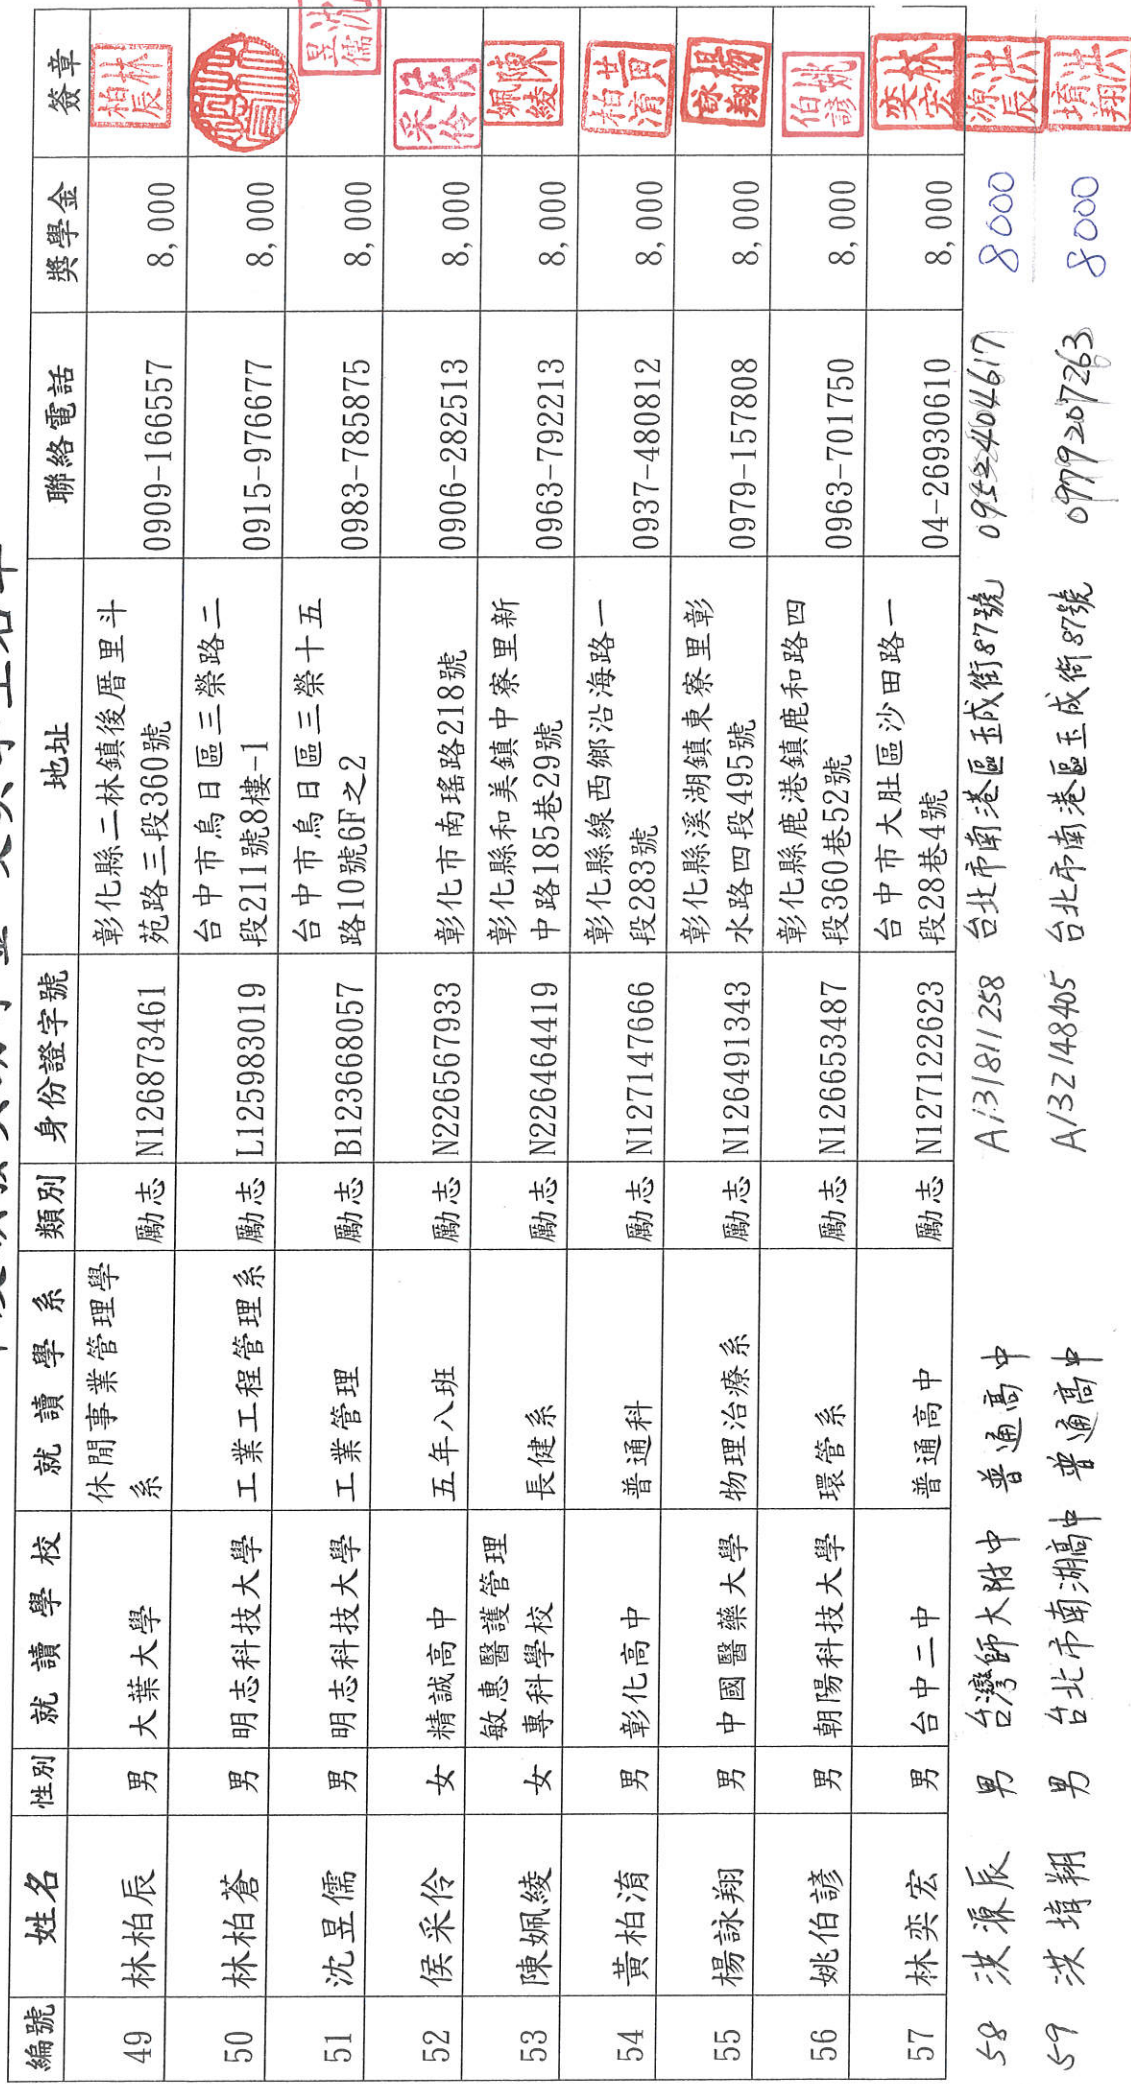 編號 姓名 性別 就讀學校 就讀學系 類別 身份證字號 地址 聯絡電話 獎學金 簽章
49 林柏辰 男 大葉大學 休閒事業管理學系 勵志 N126873461 彰化縣二林鎮後厝里斗苑路三段360號 0909-166557 8,000 林柏辰
50 林柏蒼 男 明志科技大學 工業工程管理系 勵志 L125983019 台中市烏日區三榮路二段211號8樓-1 0915-976677 8,000
51 沈昱儒 男 明志科技大學 工業管理 勵志 B123668057 台中市烏日區三榮十五路10號6F之2 0983-785875 8,000 沈昱儒
52 侯采伶 女 精誠高中 五年八班 勵志 N226567933 彰化市南瑤路218號 0906-282513 8,000 侯采伶
53 陳姵綾 女 敏惠醫護管理專科學校 長健系 勵志 N226464419 彰化縣和美鎮中寮里新中路185巷29號 0963-792213 8,000 陳姵綾
54 黃柏淯 男 彰化高中 普通科 勵志 N127147666 彰化縣線西鄉沿海路一段283號 0937-480812 8,000 黃柏淯
55 楊詠翔 男 中國醫藥大學 物理治療系 勵志 N126491343 彰化縣溪湖鎮東寮里彰水路四段495號 0979-157808 8,000 楊詠翔
56 姚伯諺 男 朝陽科技大學 環管系 勵志 N126653487 彰化縣鹿港鎮鹿和路四段360巷52號 0963-701750 8,000 姚伯諺
57 林奕宏 男 台中二中 普通高中 勵志 N127122623 台中市大肚區沙田路一段28巷4號 04-26930610 8,000 林奕宏
58 洪源辰 男 台灣師大附中 普通高中 A131811258 台北市南港區玉成街87號 8000 洪源辰
59 洪堉翔 男 台北市南湖高中 普通高中 A132148405 台北市南港區玉成街87號 0979207263 8000 洪堉翔